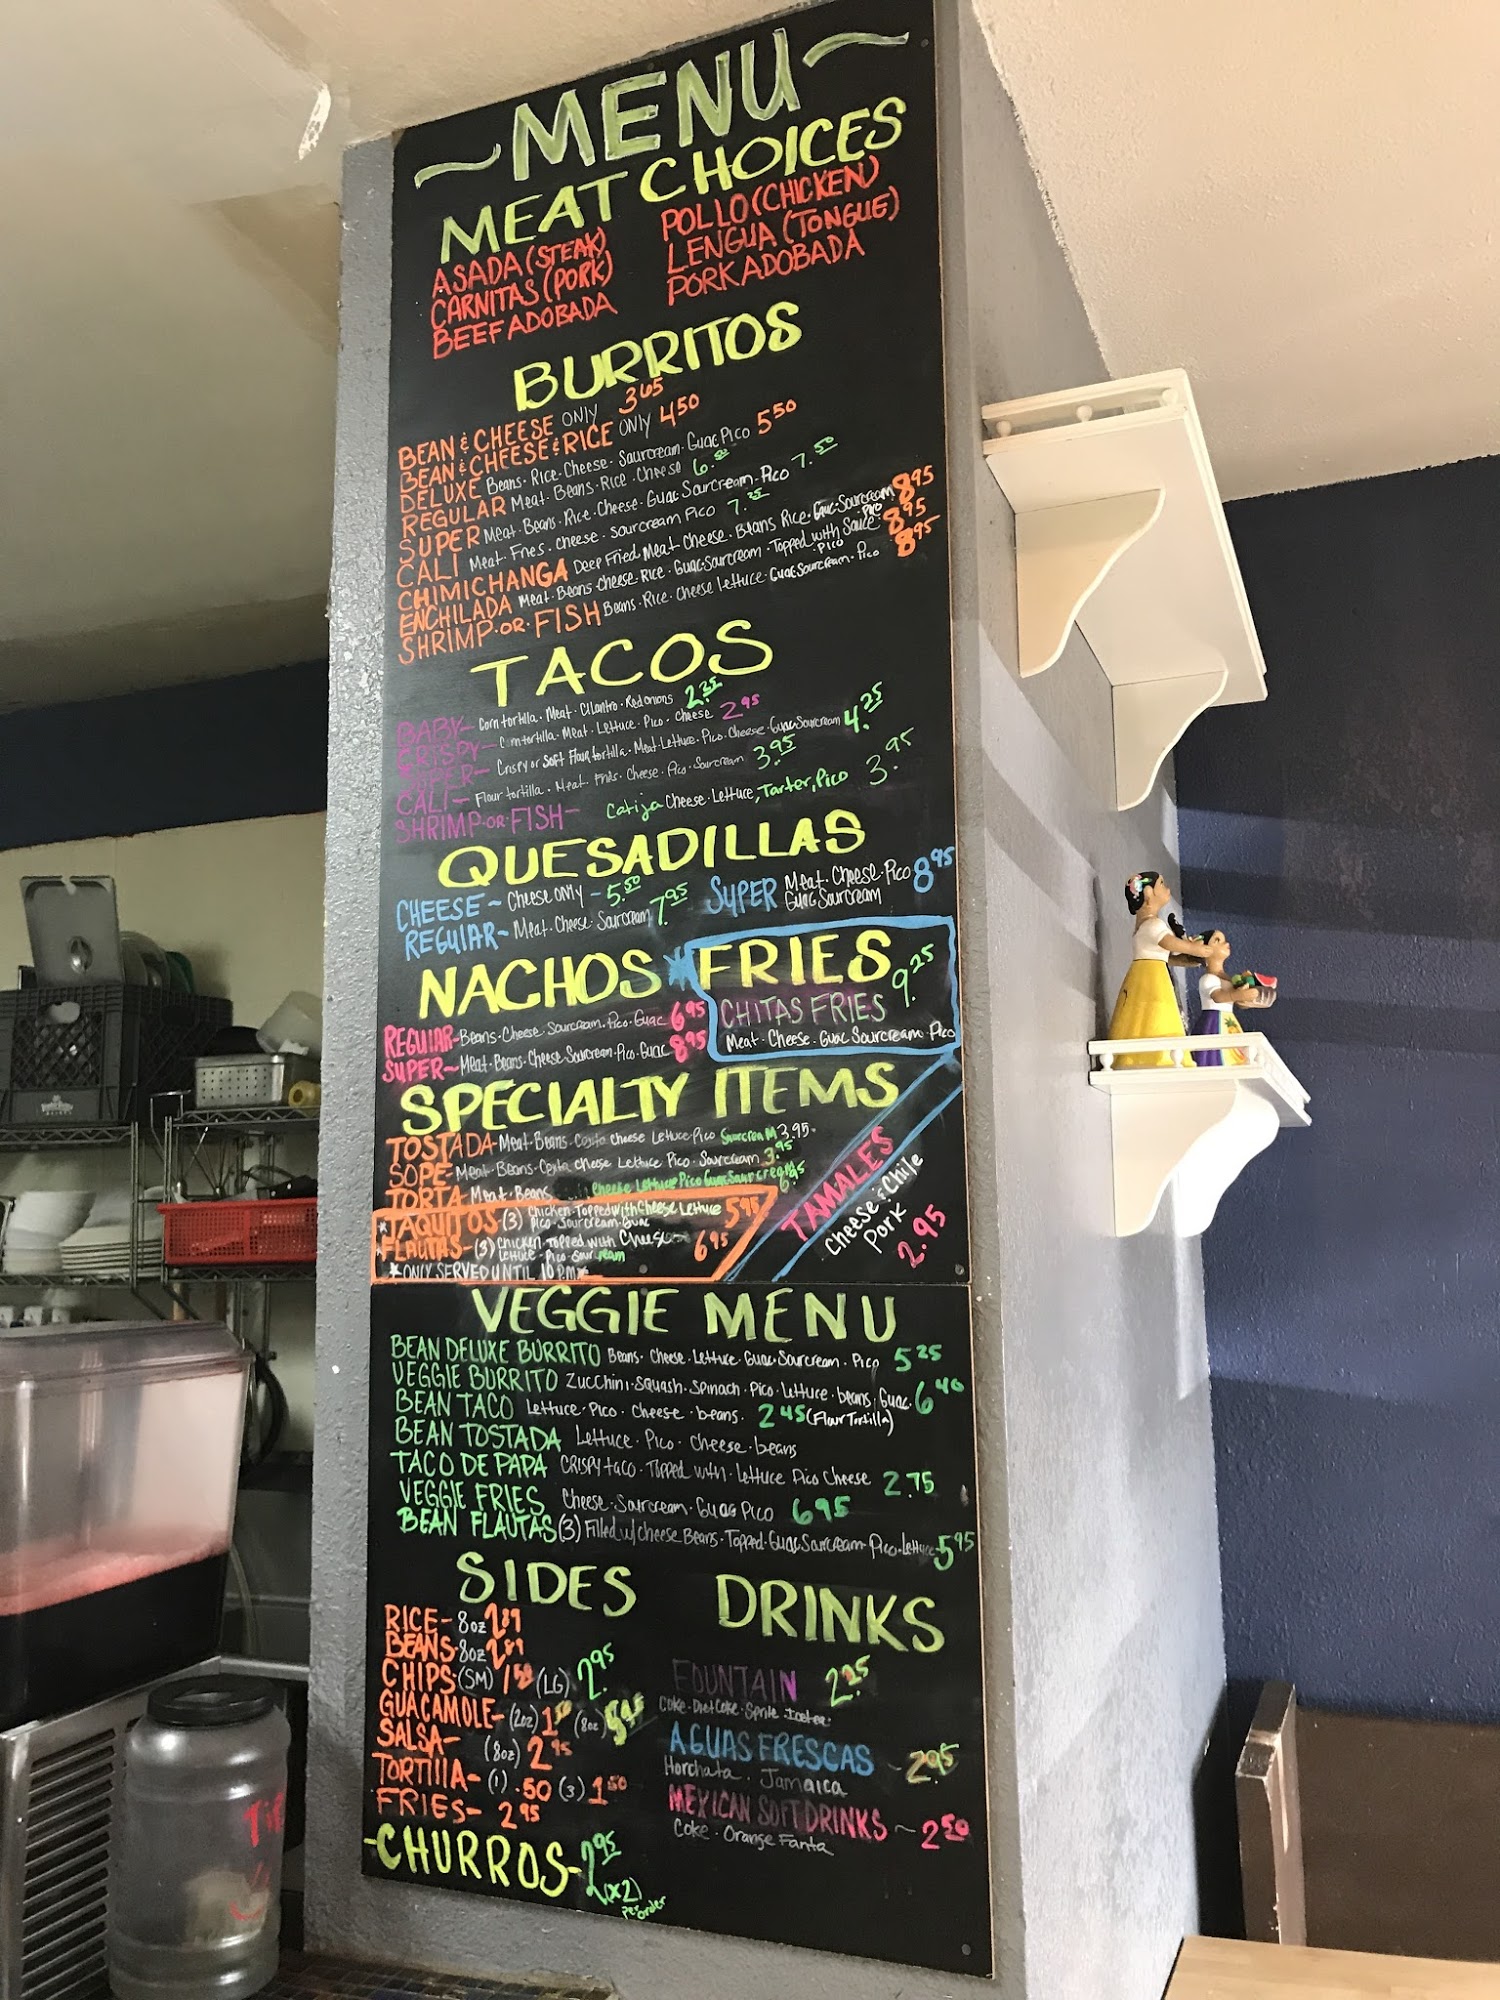 MENU
MEAT CHOICES
ASADA (STEAK) POLLO (CHICKEN)
CARNITAS (PORK) LENGUA (TONGUE)
BEEF ADOBADA PORK ADOBADA
BURRITOS
BEAN & CHEESE ONLY 3.65
BEAN & CHEESE & RICE ONLY 4.50
DELUXE Beans. Rice. Cheese. Sourcream. Guac Pico 5.50
REGULAR Meat. Beans. Rice. Cheese 6.
SUPER Meat. Beans. Rice. Cheese. Guac Sourcream. Pico 7.50
CALI Meat. Fries. cheese. sourcream Pico 7.25
CHIMICHANGA Deep Fried Meat Cheese. Beans Rice. Guac. Sourcream Pico 8.95
ENCHILADA Meat. Beans. Cheese. Rice. Guac. Sourcream. Topped with Sauce. Pico 8.95
SHRIMP OR FISH Beans. Rice. Cheese Lettuce. Guac Sourcream. Pico 8.95
TACOS
BABY- Corn tortilla. Meat. Cilantro. Red onions 2.35
CRISPY- Corn tortilla. Meat. Lettuce. Pico. cheese 2.95
SUPER- Crispy or Soft Flour tortilla. Meat. Lettuce. Pico. Cheese. Guac Sourcream 4.25
CALI- Flour tortilla. Meat Fries. Cheese. Pico. Sourcream 3.95
SHRIMP OR FISH- Cotija Cheese. Lettuce, Tarter, Pico 3.95
QUESADILLAS
CHEESE- Cheese only - 5.50 SUPER Meat. Cheese. Pico Guac Sourcream 8.95
REGULAR- Meat. Cheese. Sourcream 7.95
NACHOS *FRIES 9.25
CHITAS FRIES
Meat. Cheese. Guac Sourcream. Pico
REGULAR- Beans. Cheese. Sourcream. Pico. Guac 6.95
SUPER- Meat. Beans. Cheese. Sourcream. Pico. Guac 8.95
SPECIALTY ITEMS
TOSTADA- Meat. Beans. Cotija cheese Lettuce Pico Sourcream 3.95
SOPE- Meat. Beans. Cotija cheese Lettuce Pico. Sourcream 3.95
TORTA- Meat. Beans Cheese Lettuce Pico Guac Sourcream
*TAQUITOS- (3) Chicken. Topped with Cheese Lettuce Pico. Sourcream. Guac 5.95
*FLAUTAS- (3) Chicken. Topped with Cheese Lettuce. Pico. Sourcream 6.95
*ONLY SERVED UNTIL 10PM*
TAMALES
Cheese & Chile
Pork
2.95
VEGGIE MENU
BEAN DELUXE BURRITO Beans. Cheese. Lettuce. Guac. Sourcream. Pico 5.25
VEGGIE BURRITO Zucchini. Squash. Spinach. Pico. Lettuce. beans. Guac. 6.40
BEAN TACO Lettuce. Pico. cheese. beans. 2.45 (Flour Tortilla)
BEAN TOSTADA Lettuce. Pico. cheese. beans
TACO DE PAPA CRISPY taco. Topped with. Lettuce Pico Cheese 2.75
VEGGIE FRIES Cheese. Sourcream. Guac Pico 6.95
BEAN FLAUTAS (3) Filled w/ cheese Beans. Topped. Guac Sourcream. Pico. Lettuce 5.95
SIDES
RICE- 8oz 2.89
BEANS- 8oz 2.89
CHIPS- (SM) 1.50 (LG) 2.95
GUACAMOLE- (2oz) 1.50 (8oz)
SALSA- (8oz) 2.95
TORTIlLA- (1) .50 (3) 1.50
FRIES- 2.95
-CHURROS- 2.95
(x2)
per order
DRINKS
FOUNTAIN 2.25
Coke. Diet Coke. Sprite. Icetea.
AGUAS FRESCAS - 2.95
Horchata. Jamaica
MEXICAN SOFT DRINKS ~ 2.50
Coke. Orange Fanta